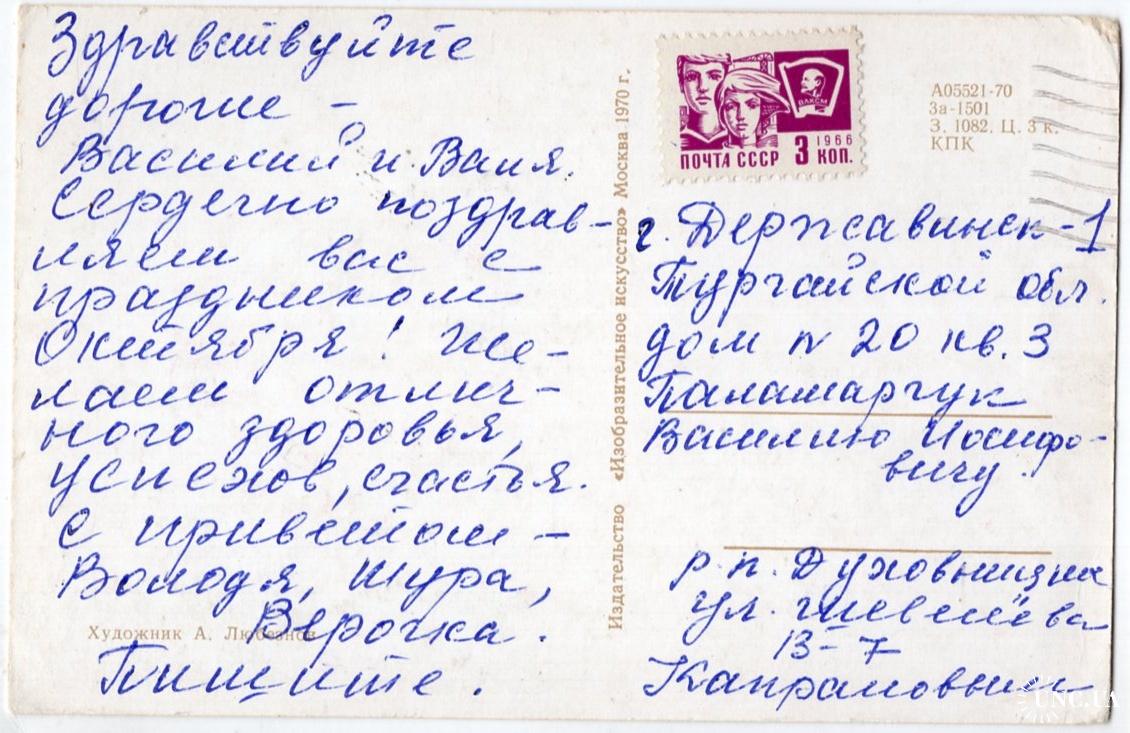 Здравствуйте
дорогие –
Василий и Валя.
Сердечно поздрав-
ляем вас с
праздником
Октября! Же-
лаем отлич-
ного здоровья,
успехов, счастья.
С приветом –
Володя, Шура,
Верочка.
Пишите.
Художник А. Любезнов
Издательство «Изобразительное искусство» Москва 1970 г.
ВЛКСМ
ПОЧТА СССР 3 1966 КОП.
А05521-70
За-1501
З. 1082. Ц. 3 к.
КПК
г. Державинск-1
Тургайской обл.
дом N 20 кв. 3
Паламарчук
Василию Иосифо-
вичу.
р.п. Духовницкое
ул.
13-7
UNC.UA